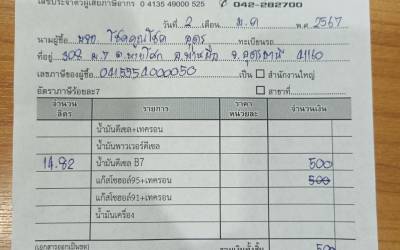 เลขประจำตัวผู้เสียภาษีอากร 0 4135 49000 525 042-282700
วันที่ 2 เดือน ม.ค พ.ศ 2567
นามผู้ซื้อ โชคคูณโชค อุดร ทะเบียนรถ
ที่อยู่ 308 ม.7 อ.บ้านผือ จ.อุดรธานี 41160
เลขภาษีของผู้ซื้อ 0415554000050 เป็น สำนักงานใหญ่
อัตราภาษีร้อยละ7 สาขาที่
จำนวน ลิตร รายการ ราคา หน่วยละ จำนวนเงิน
น้ำมันดีเซล+เทครอน
น้ำมันพาวเวอร์ดีเซล
14.82 น้ำมันดีเซล B7 500
แก๊สโซฮอล์95+เทครอน 500
แก๊สโซฮอล์91+เทครอน
น้ำมันเครื่อง
(เอกสารออกเป็นชุด) รวมเงินทั้งสิ้น 500